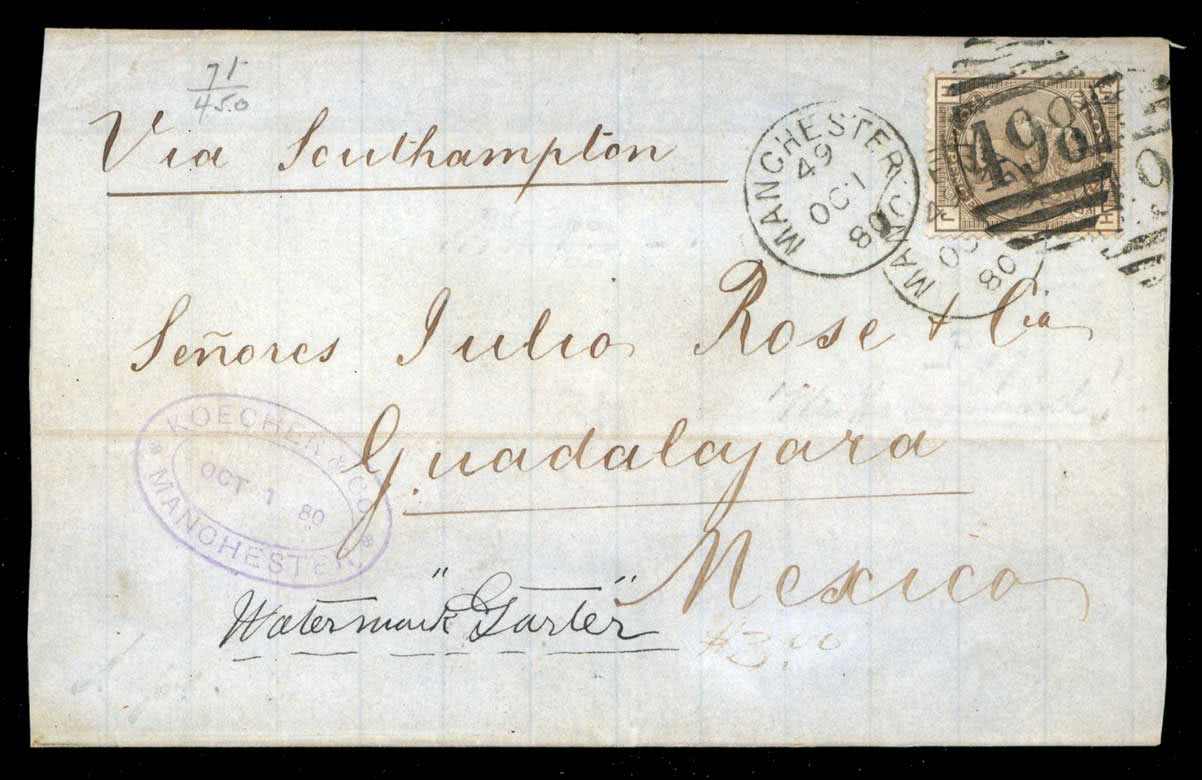 71
450
Via Southampton
MANCHESTER
49
OC 1
80
498
MANC
OC
80
Señores Julio Rose & Cia
Guadalajara
Mexico
KOECHER & CO.
OCT 1 80
MANCHESTER
Watermark "Garter"
$3.00